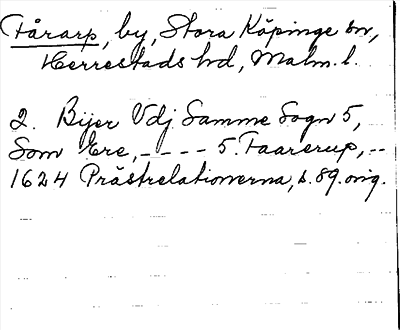 Fårarp, by, Stora Köpinge sn,
Herrestads hd, Malm. l.
2. Bijer Vdj Samme Sogn 5,
Som Ere, - - - - 5. Faarerup, - -
1624 Prästrelationerna, s. 89. orig.